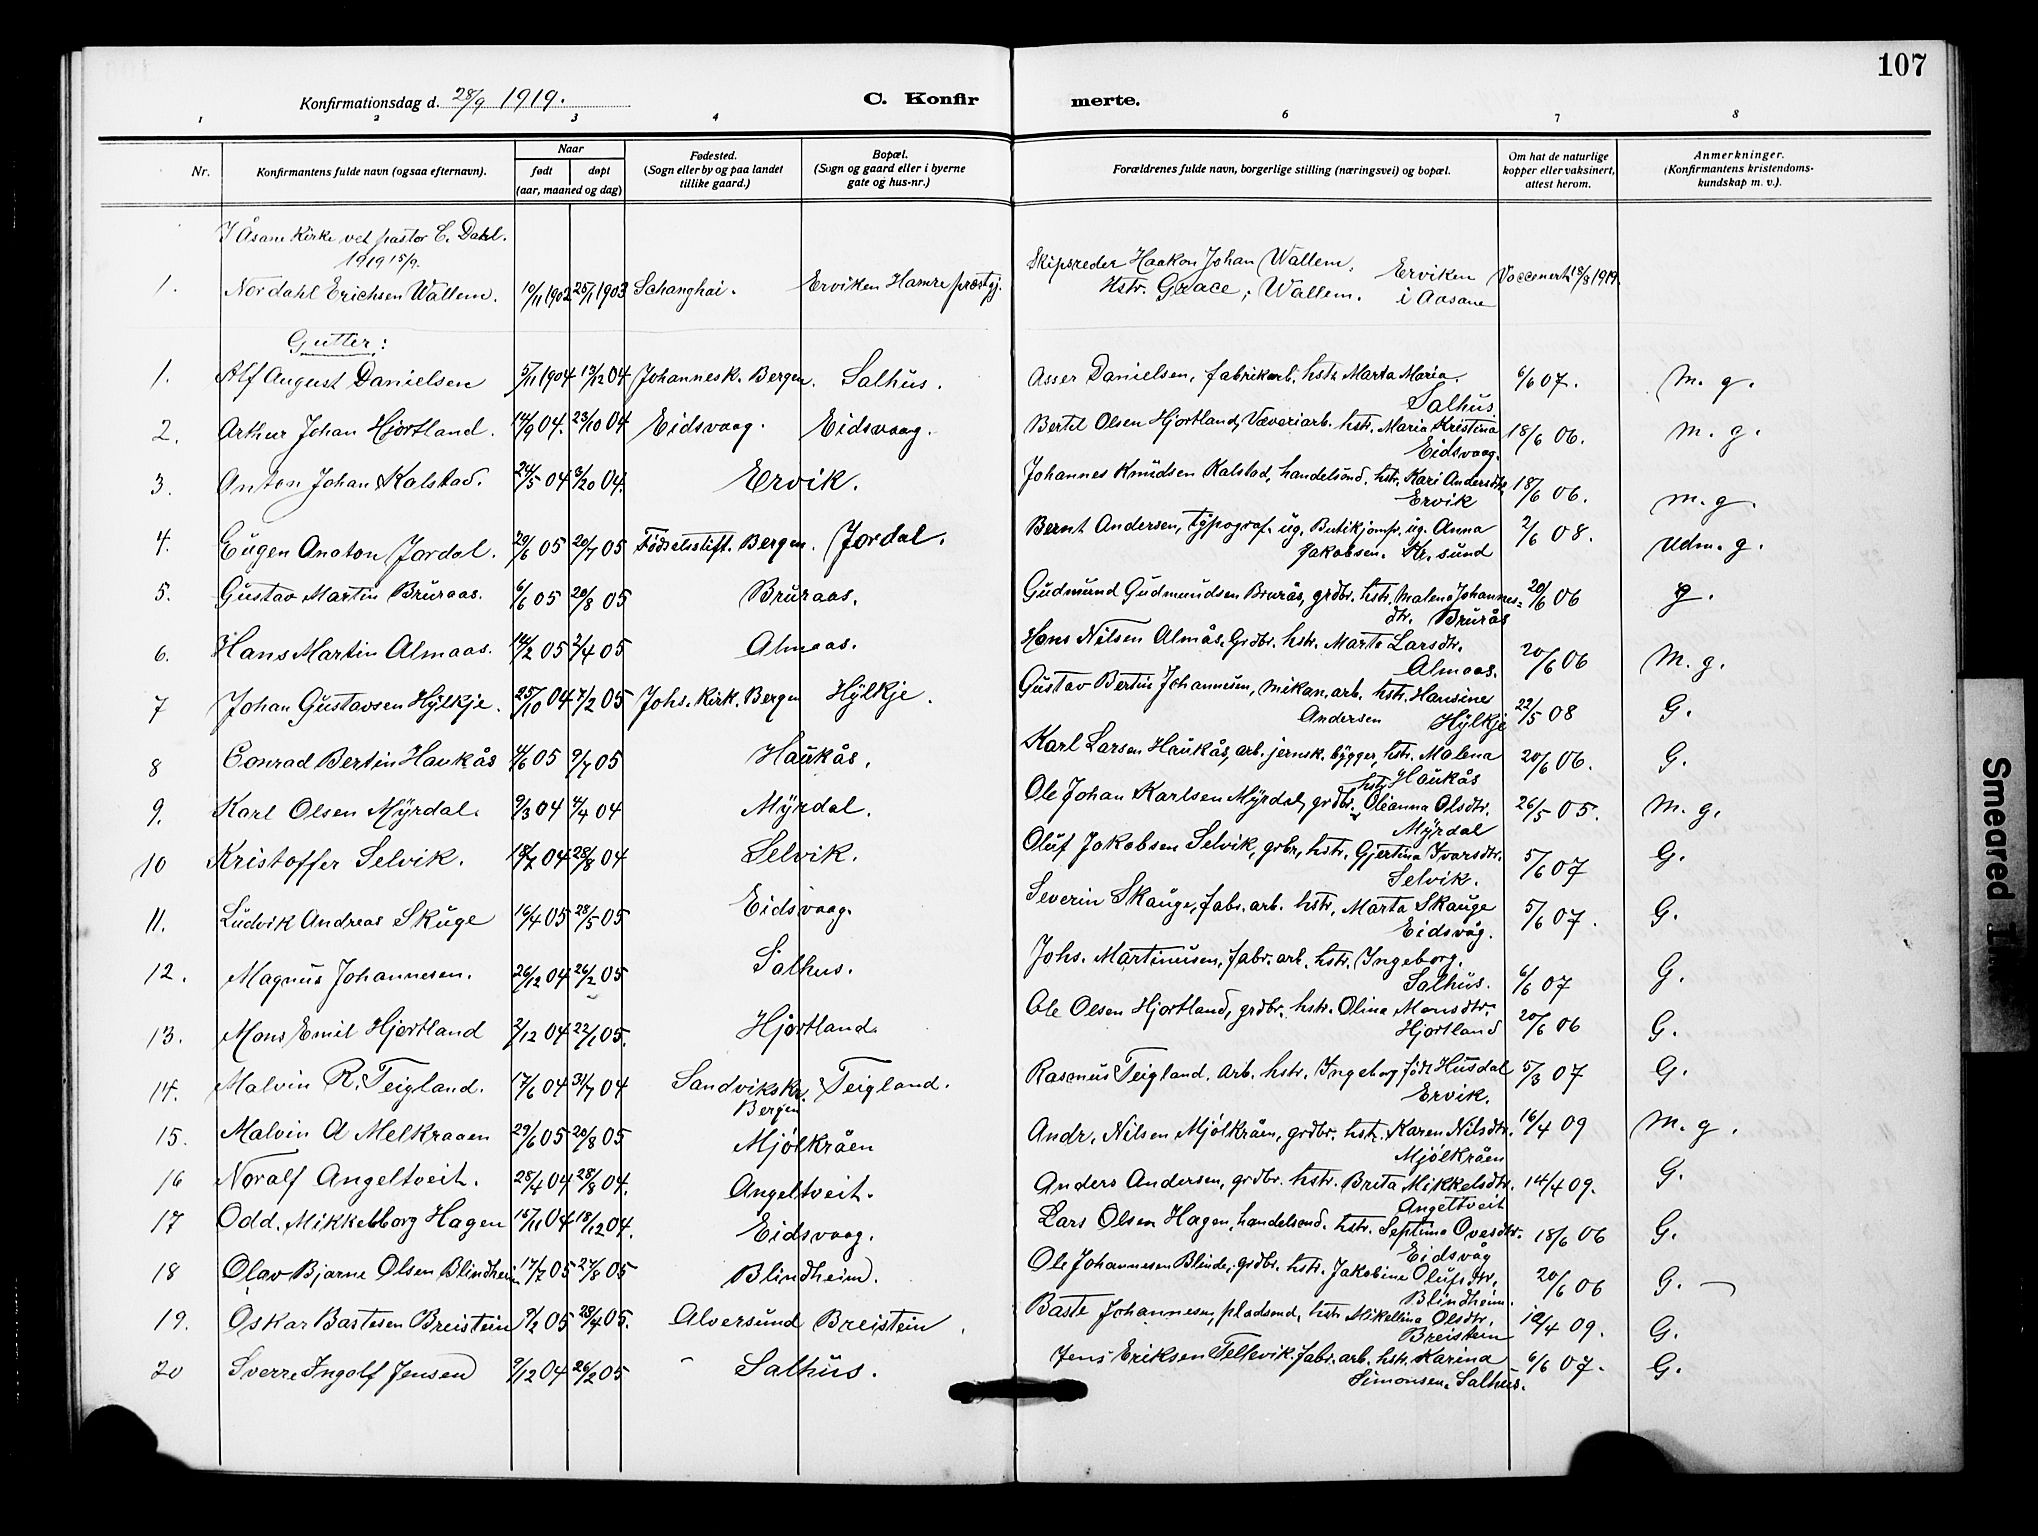 107
Konfirmationsdag d. 28/9 1919.
C. Konfir merte.
1 2 3 4 6 7 8
Nr.
Konfirmantens fulde navn (ogsaa efternavn).
Naar
født
døpt
(aar, maaned og dag)
Fødested.
(Sogn eller by og paa landet
tillike gaard.)
Bopæl.
(Sogn og gaard eller i byerne
gate og hus-nr.)
Forældrenes fulde navn, borgerlige stilling (næringsvei) og bopæl.
Om hat de naturlige
kopper eller vaksinert,
attest herom.
Anmerkninger.
(Konfirmantens kristendoms-
kundskap m. v.).
I Åsane Kirke ved pastor C. Dahl.
1919 15/9.
1. Nordahl Erichsen Wallem. 10/11 1902 25/1 1903 Schanghai. Erviken Hamre prestgj. Skipsreder Haakon Johan Wallem, Erviken 18/8 1919.
Hstr. Grace, Wallem. i Aasane
Gutter:
1. Alf August Danielsen 5/11 1904 13/12 04 Johannesk. Bergen. Salhus. Asser Danielsen, fabrikarb. hstr. Marta Maria. 6/6 07. M. g.
Salhus.
2. Arthur Johan Hjortland. 14/9 04. 23/10 04 Eidsvaag. Eidsvaag. Bertel Olsen Hjortland, Væveriarb. hstr. Maria Kristina 18/6 06. M. g.
Eidsvaag.
3. Anton Johan Kalstad. 24/5 04 Ervik. Johannes Knudsen Kalstad, handelsmd. hstr. Kari Andersdtr. 18/6 06. M. g.
Ervik
4. Eugen Anaton Jordal. 20/6 05 20/7 05 Fødselsstift. Bergen. Jordal. Bernt Andersen, typograf. ug. Butikjomfr. ug. Anna 2/6 08. Udm. g.
Jakobsen. Kr. sund
5. Gustav Martin Bruraas. 6/6 05 20/8 05 Bruraas. Gudmund Gudmundsen Brurås, grdbr. hstr. Malena Johannes- 20/6 06 g.
dtr. Brurås
6. Hans Martin Almaas. 14/2 05 2/4 05 Almaas. Hans Nilsen Almås, Grdbr. hstr. Marta Larsdtr. 20/6 06 M. g.
Almaas.
7 Johan Gustavsen Hylkje. 25/10 04 7/2 05 Johs. Kirk. Bergen Hylkje. Gustav Bertin Johannesen, mekan. arb. hstr. Hansine 22/5 08 G.
Andersen Hylkje
8 Conrad Bertin Haukås 4/6 05 9/7 05 Haukås. Karl Larsen Haukås, arb. jernsk. bygger, hstr. Malena 20/6 06. G.
Haukås
9. Karl Olsen Myrdal. 9/3 04 4/4 04 Myrdal. Ole Johan Karlsen Myrdal, grdbr. hstr. Olianna Olsdtr. 26/5 05. M. g.
Myrdal
10 Kristoffer Selvik. 18/7 04 28/8 04 Selvik. Oluf Jakobsen Selvik, grbr, hstr. Gjertina Ivarsdtr. 5/6 07 G.
Selvik.
11. Ludvik Andreas Skuge 16/4 05 28/5 05 Eidsvaag. Severin Skauge, fabr. arb. hstr, Marta Skauge 5/6 07. G.
Eidsvåg.
12. Magnus Johannesen. 26/12 04 26/2 05 Salhus. Johs. Martinusen, fabr. arb. hstr. Ingeborg. 6/6 07 G.
Salhus.
13. Mons Emil Hjortland 2/12 04 22/1 05. Hjortland. Ole Olsen Hjortland, grdbr. hstr. Olina Monsdtr. 20/6 06 G.
Hjortland
14. Malvin R. Teigland. 17/6 04 31/7 04 Sandvikskr. Teigland. Rasmus Teigland. Arb. hstr. Ingeborg født Husdal 5/3 07 G.
Bergen Ervik.
15. Malvin A Melkraaen 29/6 05 20/8 05 Mjølkråen Andr. Nilsen Mjølkråen, grdbr. hstr. Karen Nilsdtr. 16/4 09 M. g.
Mjølkråen
16 Noralf Angeltveit. 28/4 04 28/8 04. Angeltveit. Anders Andersen, grdbr. hstr. Brita Mikkelsdtr. 14/4 09. G.
Angeltveit
17 Odd. Mikkelborg Hagen 15/11 04 18/12 04. Eidsvaag. Lars Olsen Hagen, handelsmd. hstr. Septima Ovesdtr. 18/6 06 G.
Eidsvåg
18 Olav Bjarne Olsen Blindheim 17/7 05 27/8 05 Blindheim. Ole Johannesen Blindh., grdbr. hstr. Jakobine Olufsdtr. 20/6 06 G.
Blindheim.
19. Oskar Bastesen Breistein 9/2 05 23/4 05. Alversund Breistein. Baste Johannesen, pladsmd, hstr Mikellina Olsdtr. 12/4 09. G.
Breistein
20 Sverre Ingolf Jensen 9/12 04 26/2 05 Salhus. Jens Eriksen Tellevik. fabr. arb. hstr. Karina 6/6 07. G.
Simonsen. Salhus.
Smeared